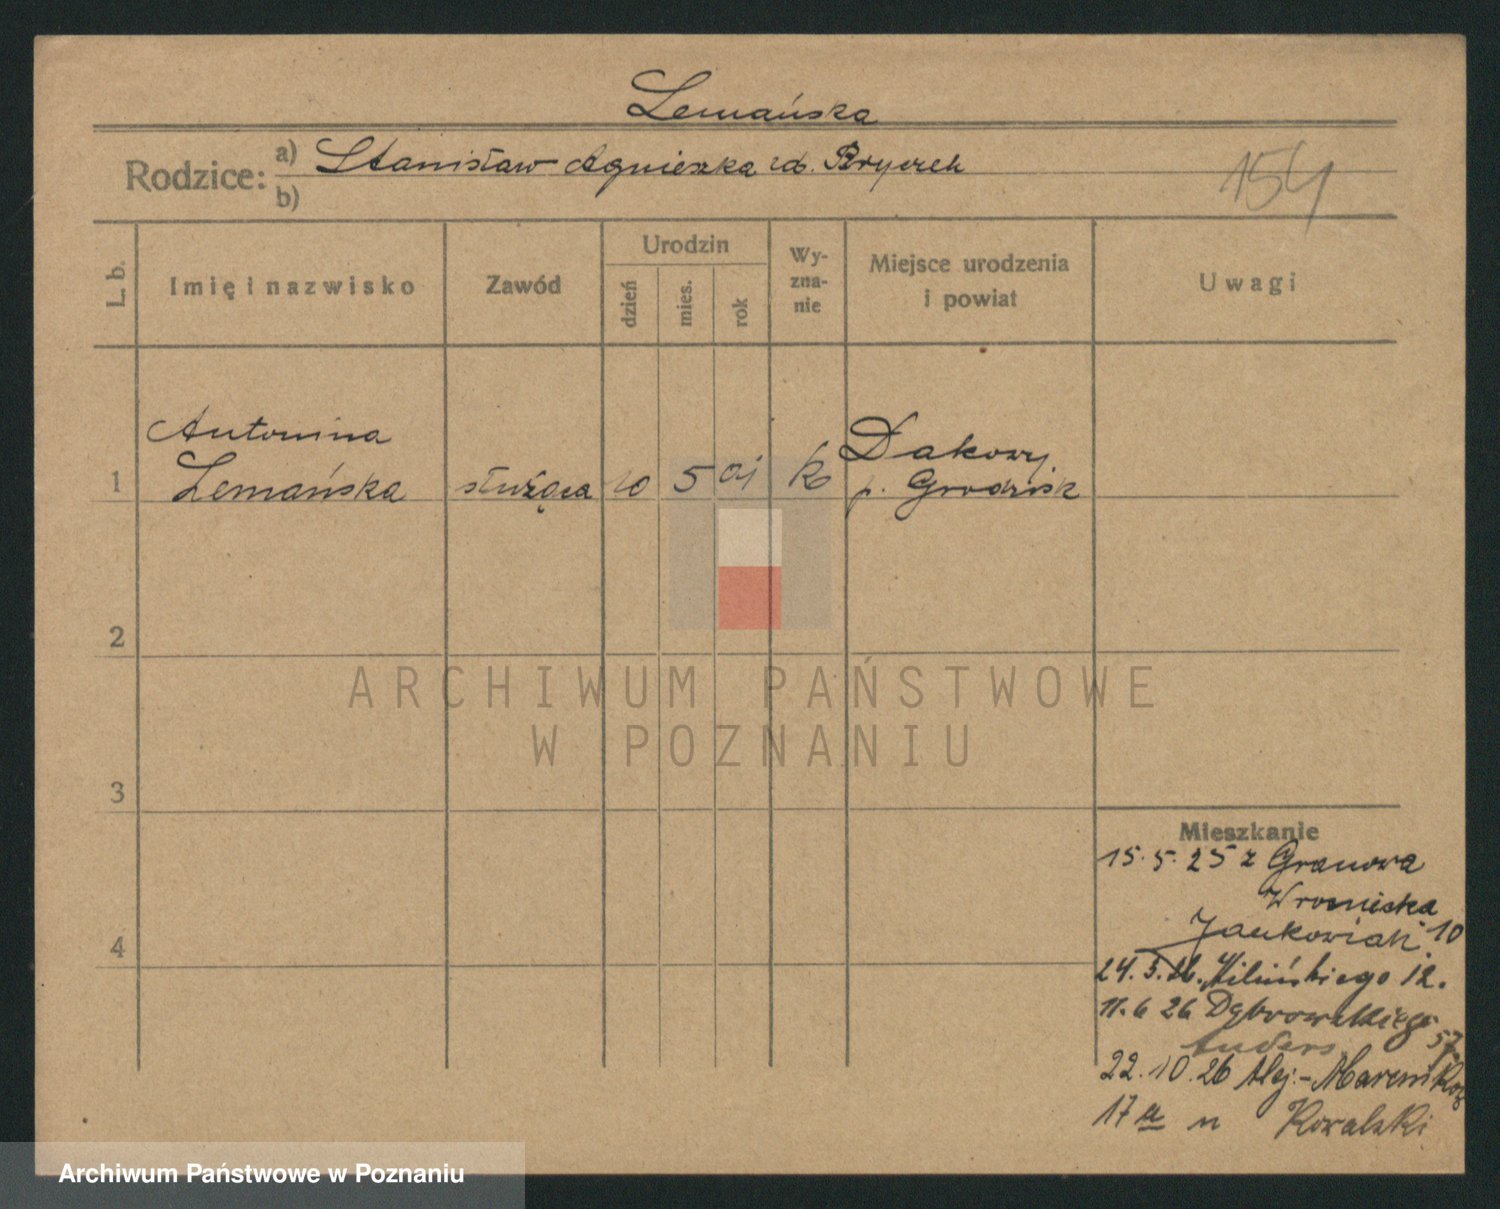 Lemańska
Rodzice: a) Stanisław Agnieszka zd.
b)
154
L. b.
Imię i nazwisko
Zawód
Urodzin
dzień
mies.
rok
Wy-
zna-
nie
Miejsce urodzenia
i powiat
Uwagi
Antonina
1 Lemańska służąca 10 5 01 k Dakowy
p. Grodzisk
2
3
4
ARCHIWUM PAŃSTWOWE
W POZNANIU
Mieszkanie
15.5.25 z Granowa
Wroniecka
Jankowiak 10
24.3.26. Kilińskiego 12.
11.6 26 Dąbrowskiego 57
Anders
22.10.26 Alej.-Marcinkow
17a u Kowalski
Archiwum Państwowe w Poznaniu